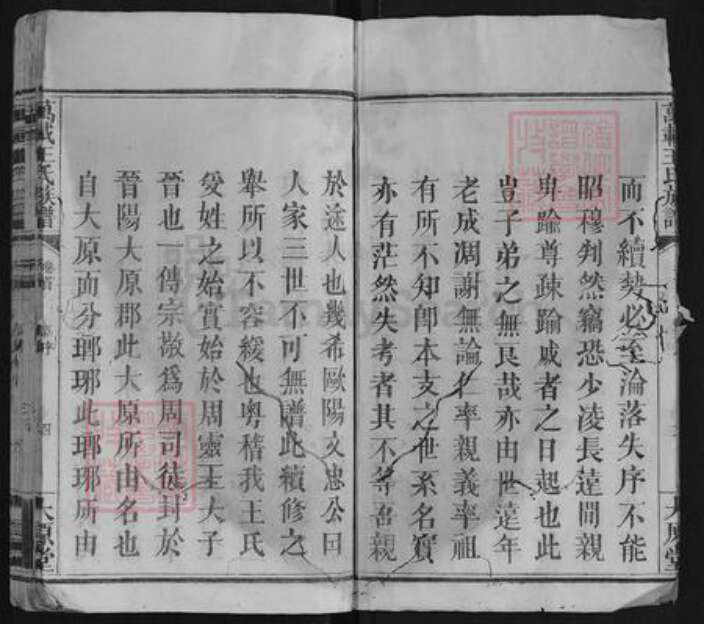 萬載王氏族譜
而不續勢必至淪落失序不能
昭穆判然竊恐少凌長薳間親
卑踰尊疎踰戚者之日起也此
豈子弟之無良哉亦由世遠年
老成凋謝無論仁率親義率祖
有所不知卽本支之世系名實
亦有茫然失考者其不等吾親
於途人也幾希歐陽文忠公曰
人家三世不可無譜此續修之
舉所以不容緩也粤稽我王氏
受姓之始實始於周靈王大子
晉也一傳宗敬爲周司徒封於
晉陽大原郡此大原所由名也
自大原而分瑯琊此瑯琊所由
萬載王氏族譜
卷首
四
大原堂